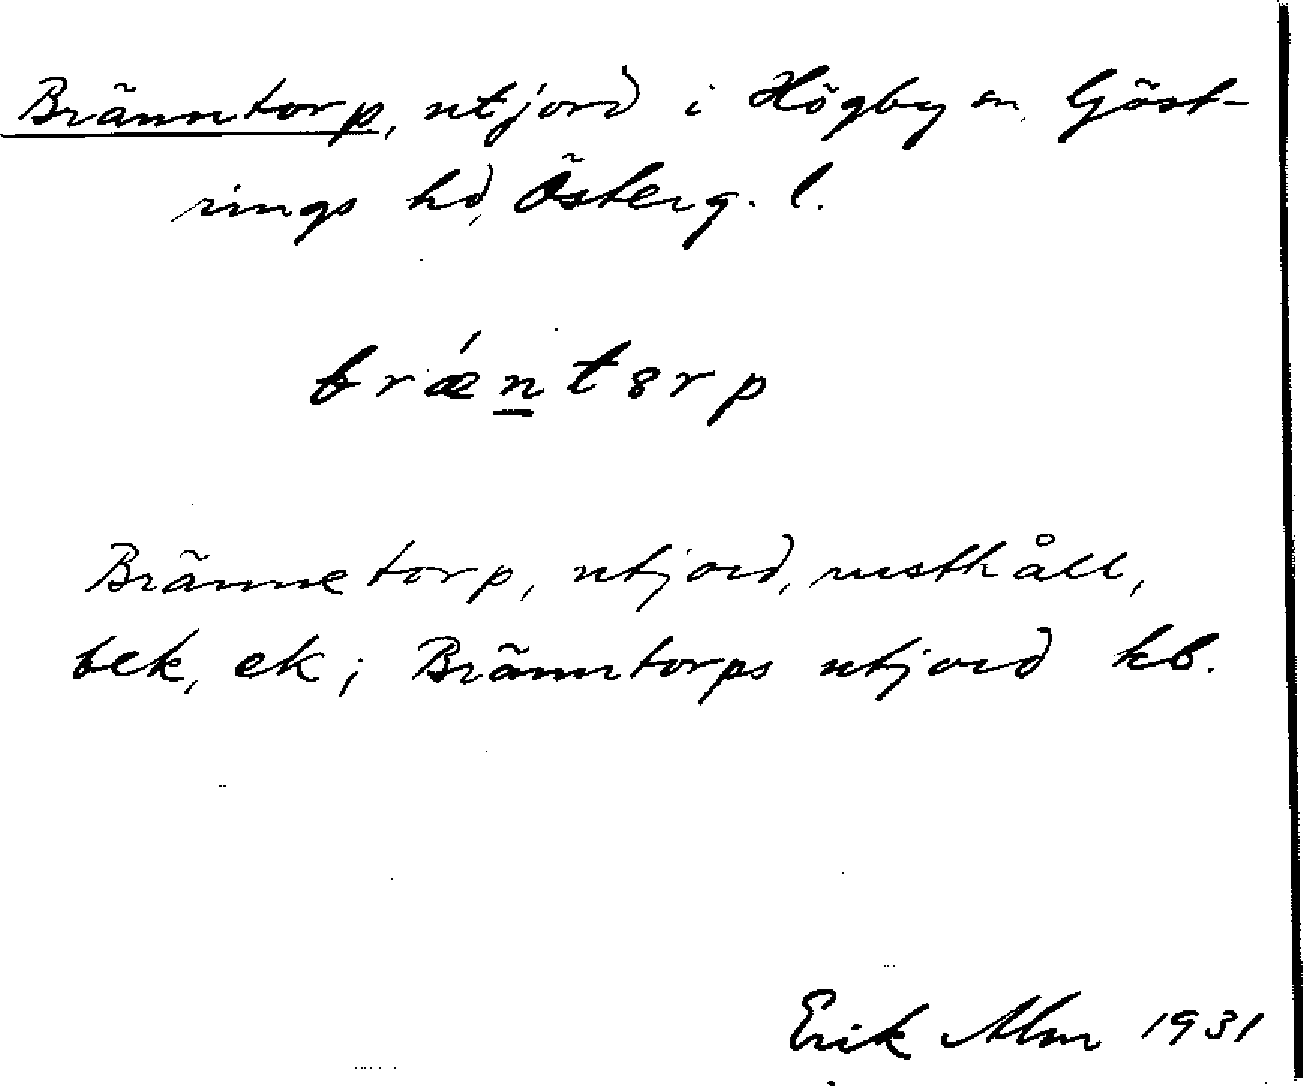 Bränntorp, utjord i Högby sn. Göst-
rings hd, Österg. l.
brǽntorp
Brännetorp, utjord, rusthåll,
bek, ek; Bränntorps utjord kb.
Erik Alm 1931